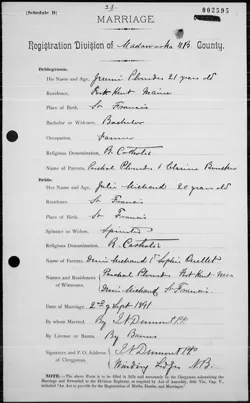 [Schedule B]
33
002595
MARRIAGE.
Registration Division of Madawaska N.B. County.
Bridegroom.
His Name and Age, Jremi Plourdes 21 years old
Residence, Fort Kent Maine
Place of Birth St Francis
Bachelor or Widower, Bachelor
Occupation, Farmer
Religious Denomination, R Catholic
Name of Parents, Paschal Plourdes &
Bride.
Her Name and Age, Julie Michaud 20 years old
Residence, St Francis
Place of Birth St Francis
Spinster or Widow, Spinster
Religious Denomination, R Catholic
Name of Parents Denis Michaud & Sophie Ouellet
Names and Residences of Witnesses, Paschal Plourdes Fort Kent Me
Denis Michaud, St Francis
Date of Marriage, 2nd Sept 1891
By whom Married, By
By License or Banns, By Banns
Signature and P. O. Address of Clergyman,
N.B.
NOTE.—The above Form is to be filled in and forwarded by the Clergyman solemnizing the Marriage and forwarded to the Division Registrar, as required by Act of Assembly,
intituled "An Act to provide for the Registration of Births, Deaths, and Marriages."